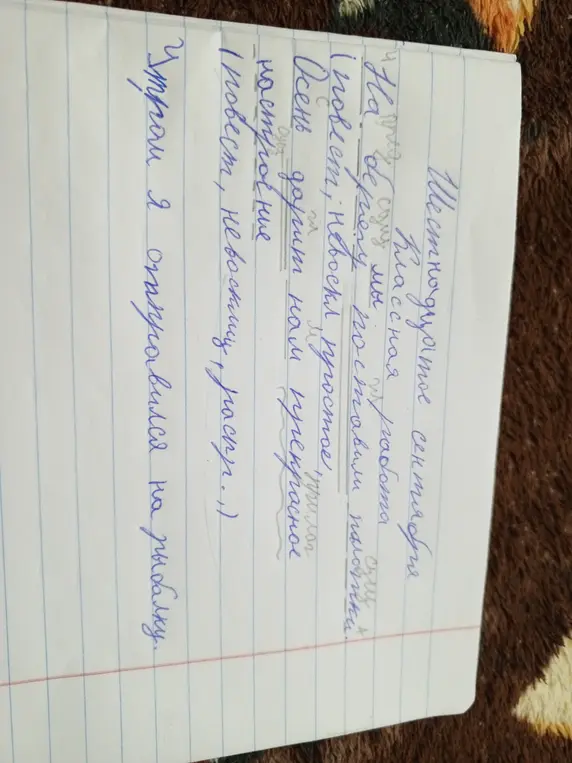 Шестнадцатое сентября
Классная работа
предл сущ гл сущ
На берегу мы поставили палатки.
(повест, невоскл простое,
с гл м прилаг
Осень дарит нам прекрасное
сущ
настроение
(повест, невосклиц, распр.,)
Утром я отправился на рыбалку.